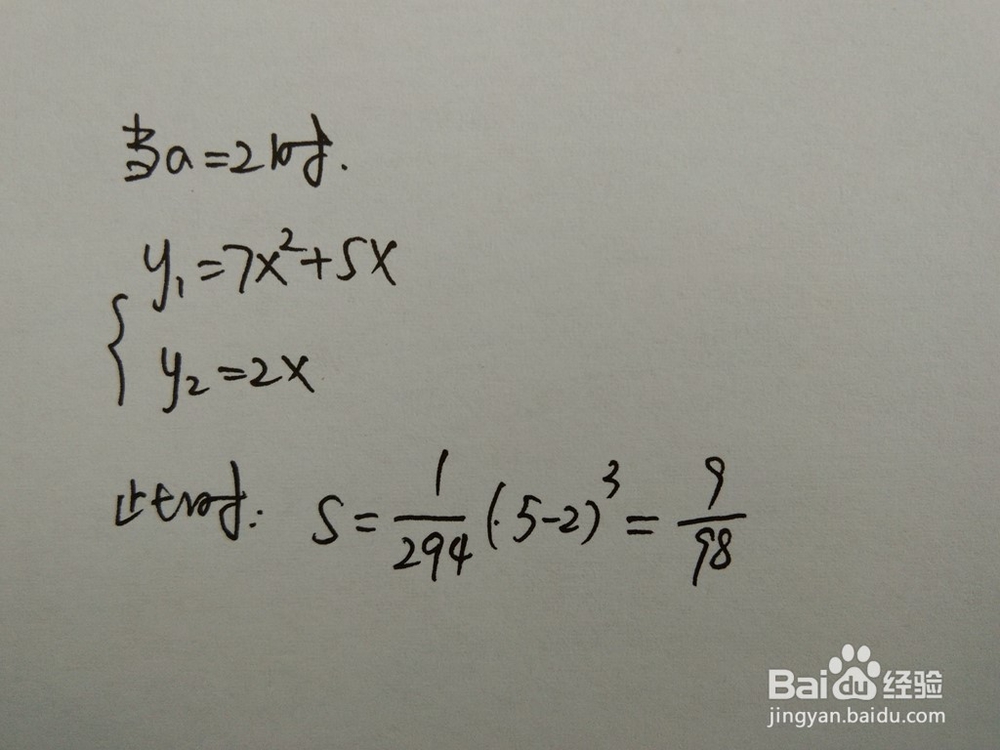 当a=2时.
y₁=7x²+5x
y₂=2x
此时: S=1/294(5-2)³=9/98
Bai du 经验
jingyan.baidu.com